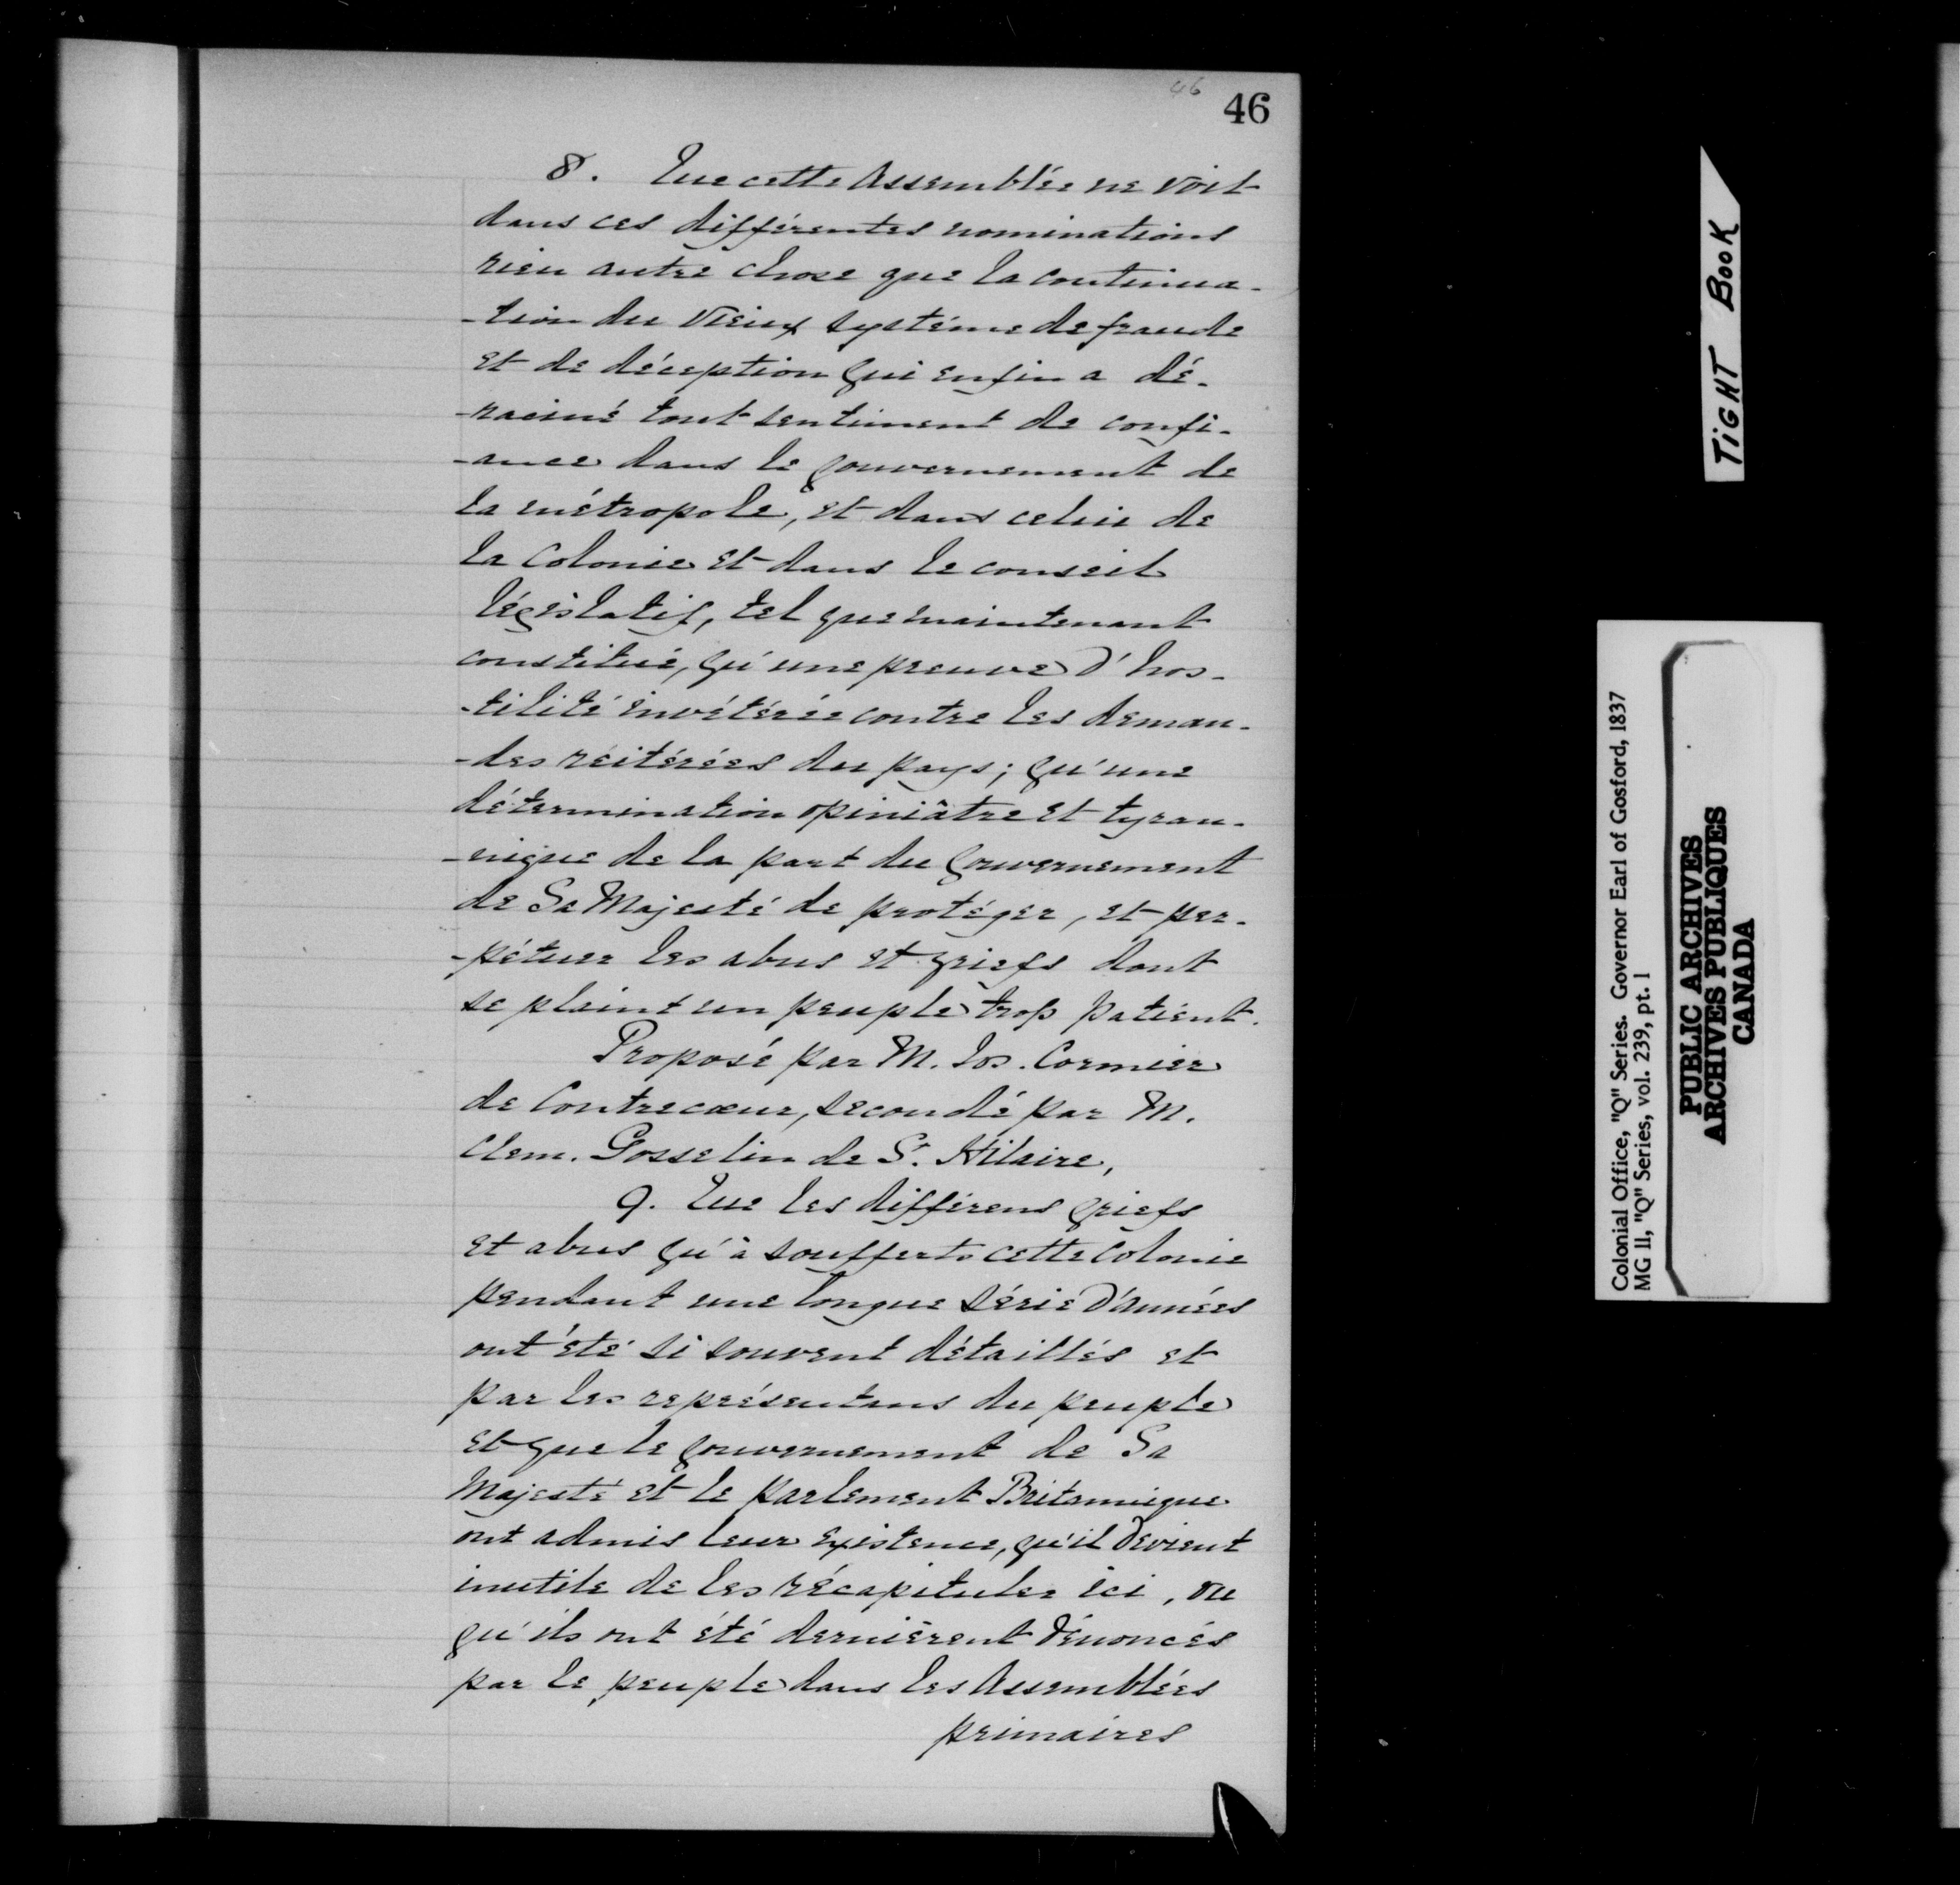 46
46
8. Que cette Assemblée ne voit
dans ces différentes nominations
rien autre chose que la continua-
-tion du vieux système de fraude
et de déception qui enfin a dé-
-raciné tout sentiment de confi-
-ance dans le gouvernement de
la métropole, et dans celui de
la Colonie et dans le conseil
législatif, tel que maintenant
constitué, qu'une preuve d'hos-
-tilité invétérée contre les deman-
-des réitérées du pays; qu'une
détermination opiniâtre et tyran-
-nique de la part du gouvernement
de Sa Majesté de protéger, et per-
-pétuer les abus et griefs dont
se plaint un peuple trop patient.
Proposé par M. Jos. Cormier
de Contrecœur, secondé par M.
Clem. Gosselin de St. Hilaire,
9. Que les différens griefs
et abus qu'à soufferts cette Colonie
pendant une longue série d'années
ont été si souvent détaillés et
par les représentans du peuple
et que le gouvernement de Sa
Majesté et le parlement Britannique
ont admis leur existence, qu'il devient
inutile de les récapituler ici, vu
qu'ils ont été dernièrent dénoncés
par le peuple dans les Assemblées
primaires
TIGHT BOOK
Colonial Office, "Q" Series. Governor Earl of Gosford, 1837
MG 11, "Q" Series, vol. 239, pt. 1
PUBLIC ARCHIVES
ARCHIVES PUBLIQUES
CANADA